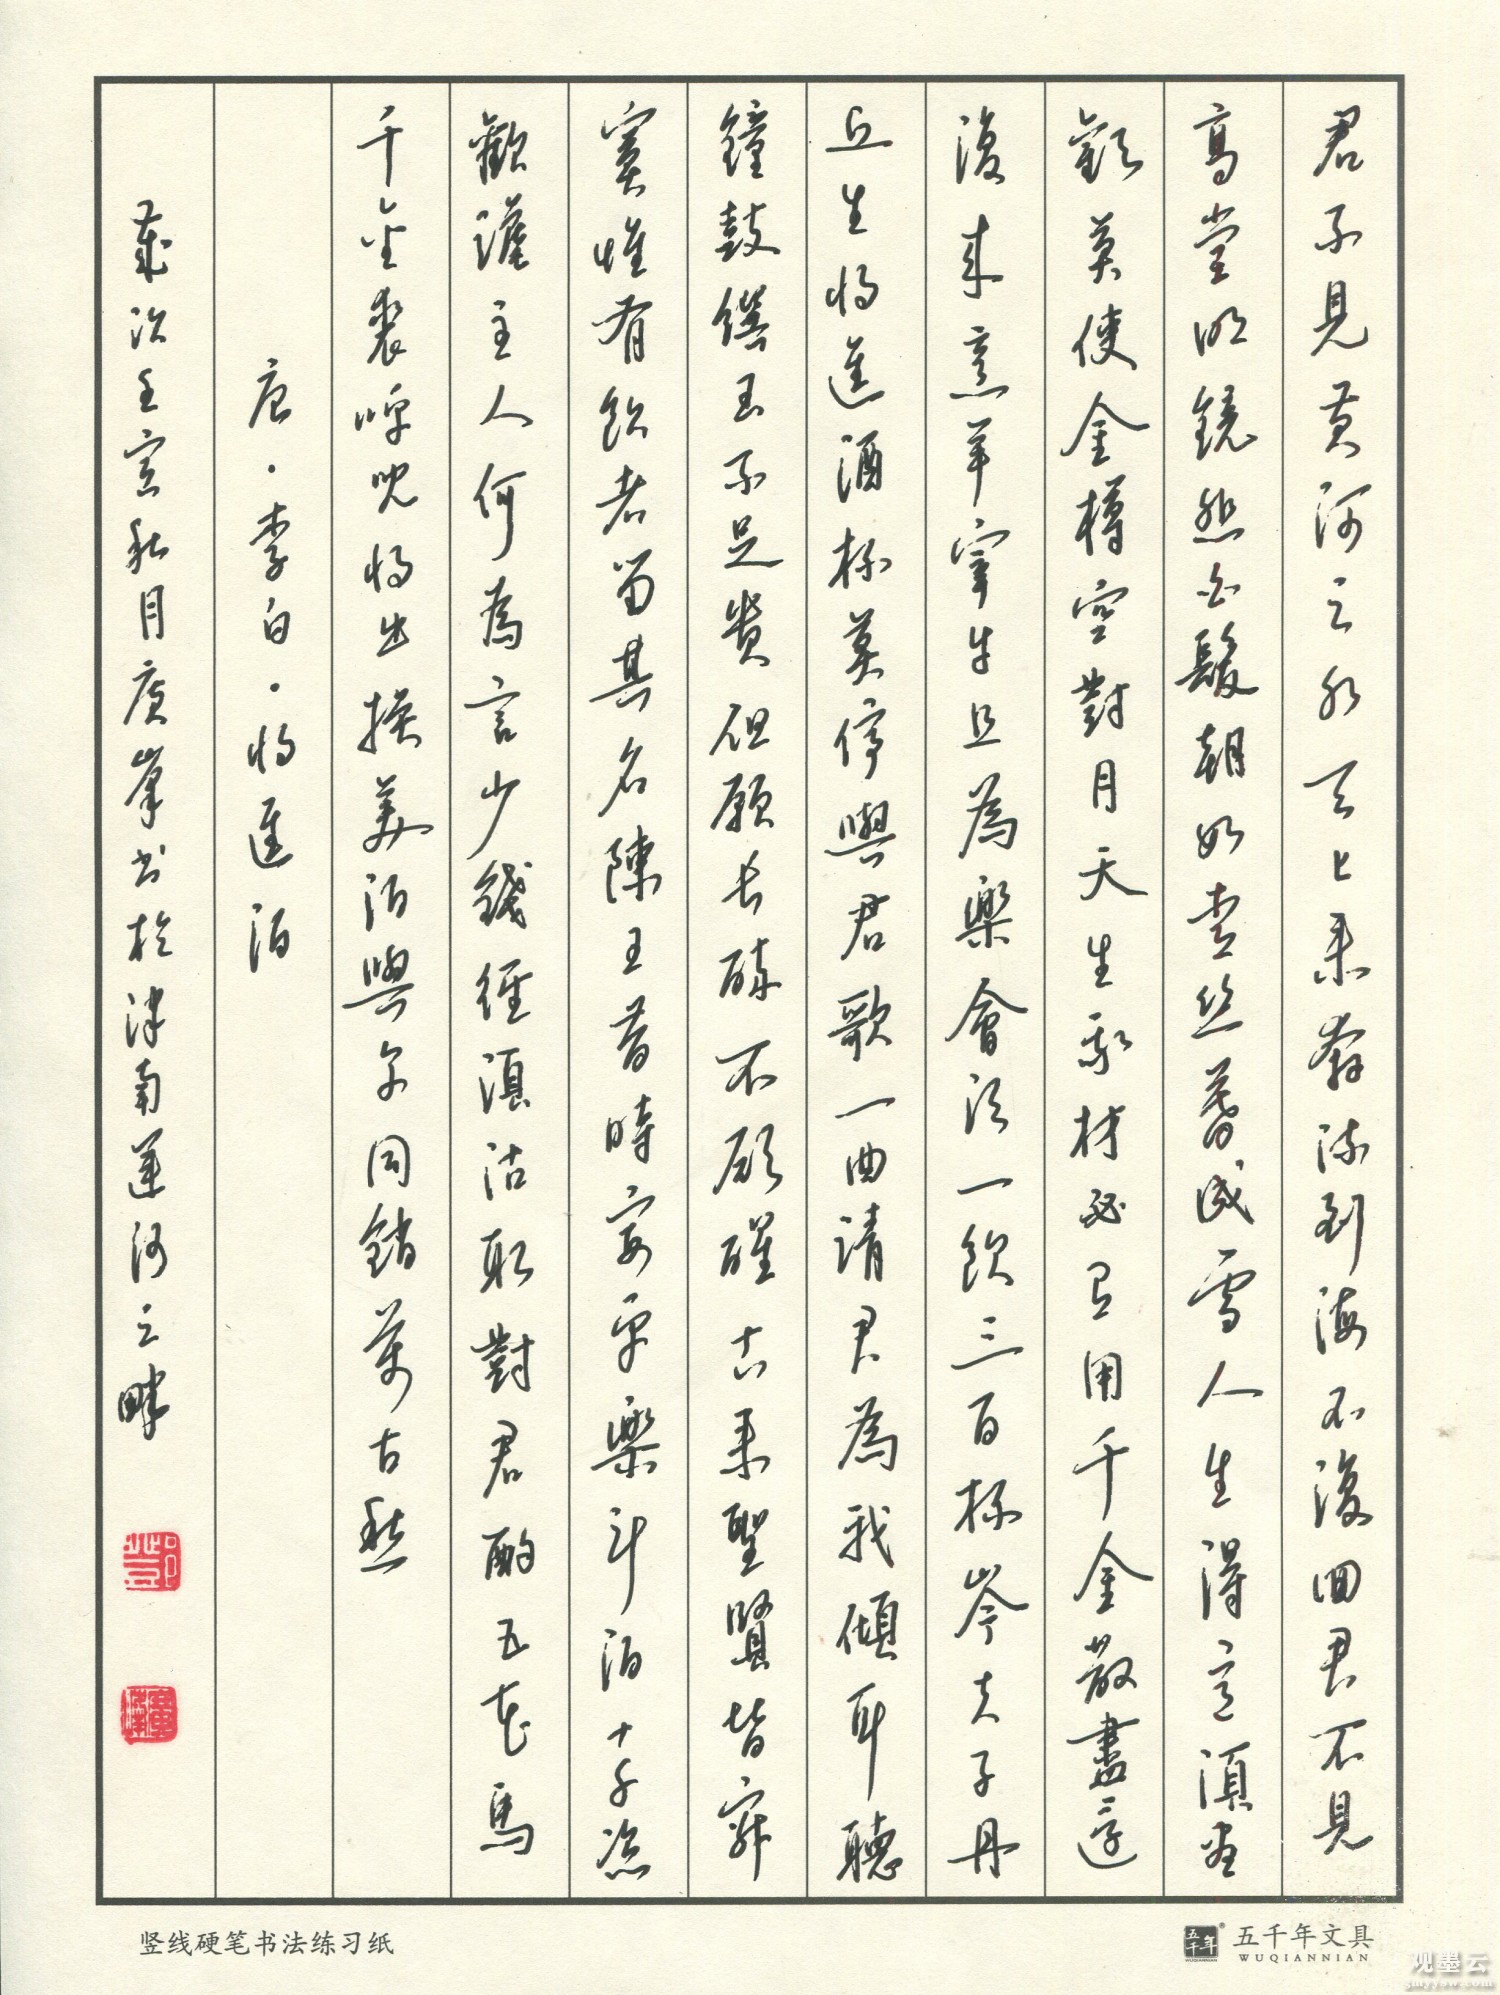 君不見黃河之水天上來奔流到海不復回君不見
高堂明鏡悲白髮朝如青絲暮成雪人生得意須盡
歡莫使金樽空對月天生我材必有用千金散盡還
復來烹羊宰牛且為樂會須一飲三百杯岑夫子丹
丘生將進酒杯莫停與君歌一曲請君為我傾耳聽
鐘鼓饌玉不足貴但願長醉不願醒古來聖賢皆寂
寞惟有飲者留其名陳王昔時宴平樂斗酒十千恣
歡謔主人何為言少錢徑須沽取對君酌五花馬
千金裘呼兒將出換美酒與爾同銷萬古愁
唐·李白·將進酒
歲次壬寅秋月廣峯書於津南運河之畔
竖线硬笔书法练习纸
五千年
WUQIANNIAN
五千年文具
WUQIANNIAN
观墨云